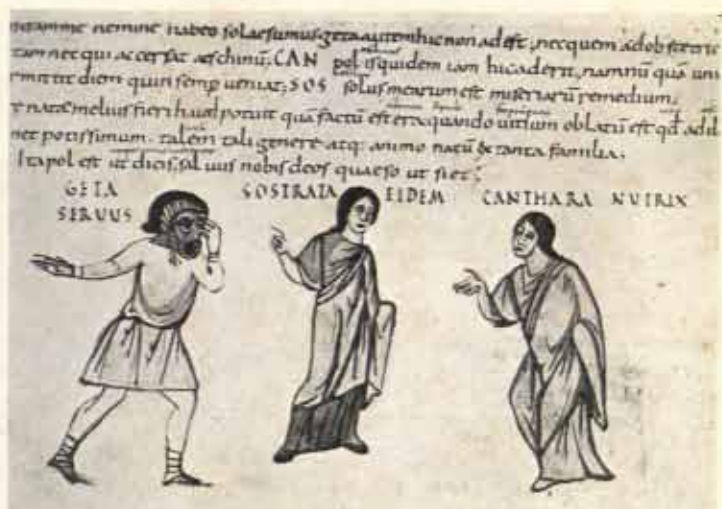 neminem habeo solae sumus. geta autem hic non adest, nec quem ad obstetrice
nec qui accersat aeschinū; CAN pol is quidem iam hic aderit, nam nū quā unū
mittit diem quin semp veniat; SOS solus mearum est miseriarū remedium;
e nata melius fieri haud potuit quā factū est era quando uitium oblatū est qđ ad il
net potissimum. talem tali genere atq; animo natū & tanta familia;
Ita pol est ut dicis, saluus nobis deos quaeso ut siet;
GETA SOSTRATA EIDEM CANTHARA NUTRIX
SERUUS